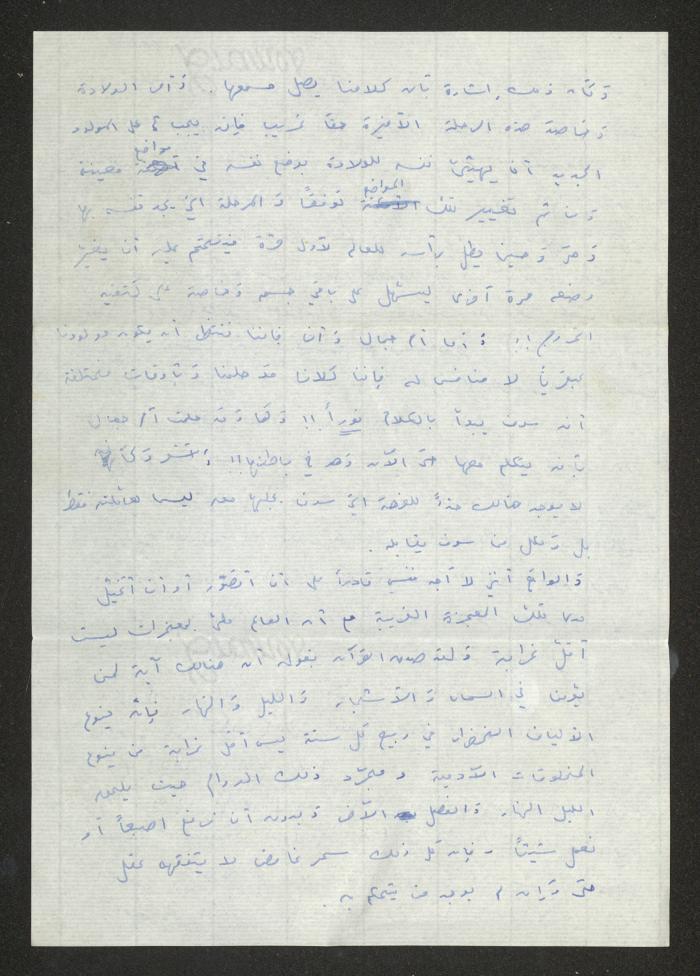 وكأن ذلك إشارة بأن كلامنا يصل مسمعها. وأمر الولادة
وخاصة هذه المرحلة الأخيرة حقاً غريب فإنه يجب على المولود
الجديد أن يهيئ نفسه للولادة بوضع نفسه في مواضع معينة
ومن ثم تغيير تلك المواضع توفقاً والمرحلة التي يجد نفسه بها
وحتى وحينما يطل برأسه للعالم لأول مرة فيتحتم عليه أن يغير
وضعه مرة أخرى ليسهل على باقي جسمه وخاصة على كتفيه
الخروج!! وأما أم جمال وأنا فإننا نتكل أن يكون مولودنا
عبقرياً لا منافس له فإننا كلانا قد حلمنا وبأوقات مختلفة
أنه سوف يبدأ بالكلام فوراً!! وكما وقد حلمت أم جمال
بأنه يتكلم معها حتى الآن وهو في باطنها!!
لا يوجد هنالك حداً للفرحة التي سوف يجلبها معه ليس لعائلته فقط
بل ولكل من سوف يقابله.
والواقع أنني لا أجد نفسي قادراً على أن أتصور أو أن أتخيل
مدى تلك المعجزة الغريبة مع أن العالم ملئ بمعجزات ليست
أقل غرابة ولقد صدق القرآن بقوله أن هنالك آية لمن
يؤمن في السماء والأشجار والليل والنهار فإن ينوع
الألياف الخضراء في ربيع كل سنة ليس أقل غرابة من ينوع
المخلوقات الآدمية ومجرد ذلك الدوام حيث يلحق
الليل النهار والفصل الآخر وبدون أن نرفع اصبعاً أو
نفعل شيئاً - فإن كل ذلك سحر غامض لا يتفقهه عقل
حتى وإن لم يوجد من يتحكم به.